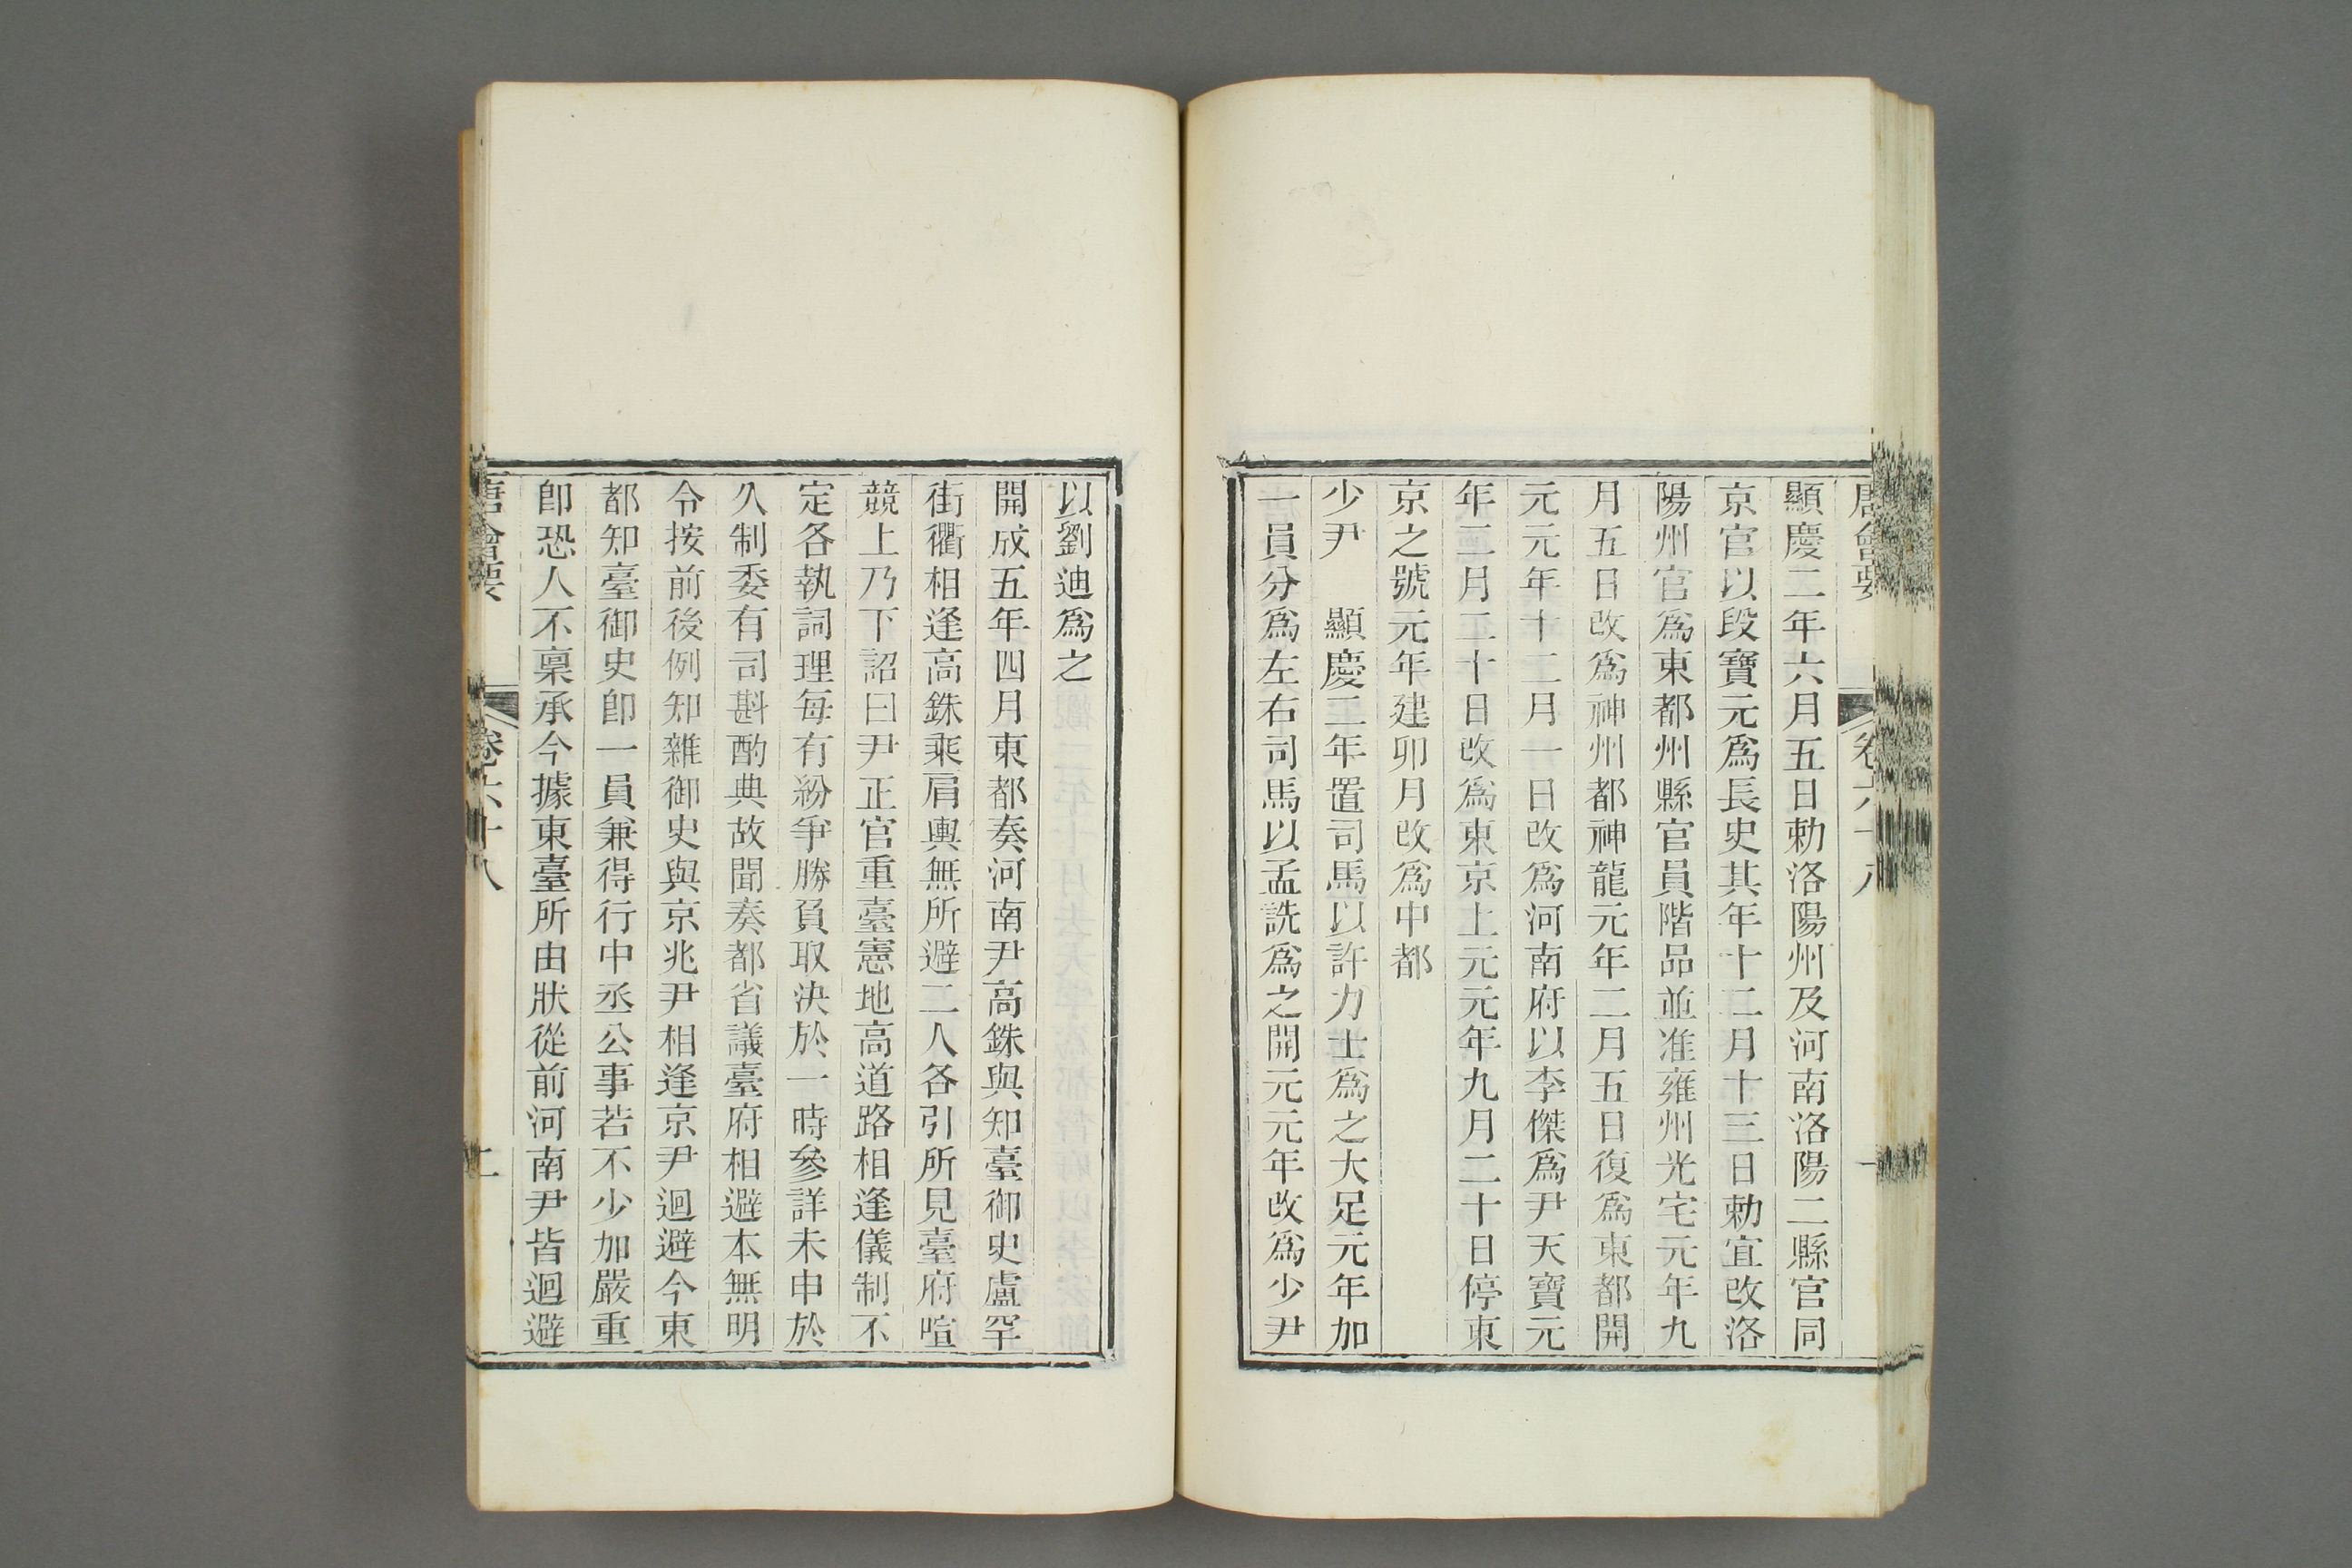 唐會要 卷六十八 一
顯慶二年六月五日勅洛陽州及河南洛陽二縣官同
京官以段寶元爲長史其年十二月十三日勅宜改洛
陽州官爲東都州縣官員階品並准雍州光宅元年九
月五日改爲神州都神龍元年二月五日復爲東都開
元元年十二月一日改爲河南府以李傑爲尹天寶元
年二月二十日改爲東京上元元年九月二十日停東
京之號元年建卯月改爲中都
少尹 顯慶二年置司馬以許力士爲之大足元年加
一員分爲左右司馬以孟詵爲之開元元年改爲少尹
以劉迪爲之
開成五年四月東都奏河南尹高銖與知臺御史盧罕
街衢相逢高銖乘肩輿無所避二人各引所見臺府喧
競上乃下詔曰尹正官重臺憲地高道路相逢儀制不
定各執詞理每有紛爭勝負取決於一時參詳未申於
久制委有司斟酌典故聞奏都省議臺府相避本無明
令按前後例知雜御史與京兆尹相逢京尹迴避今東
都知臺御史卽一員兼得行中丞公事若不少加嚴重
卽恐人不稟承今據東臺所由狀從前河南尹皆迴避
唐會要 卷六十八 二